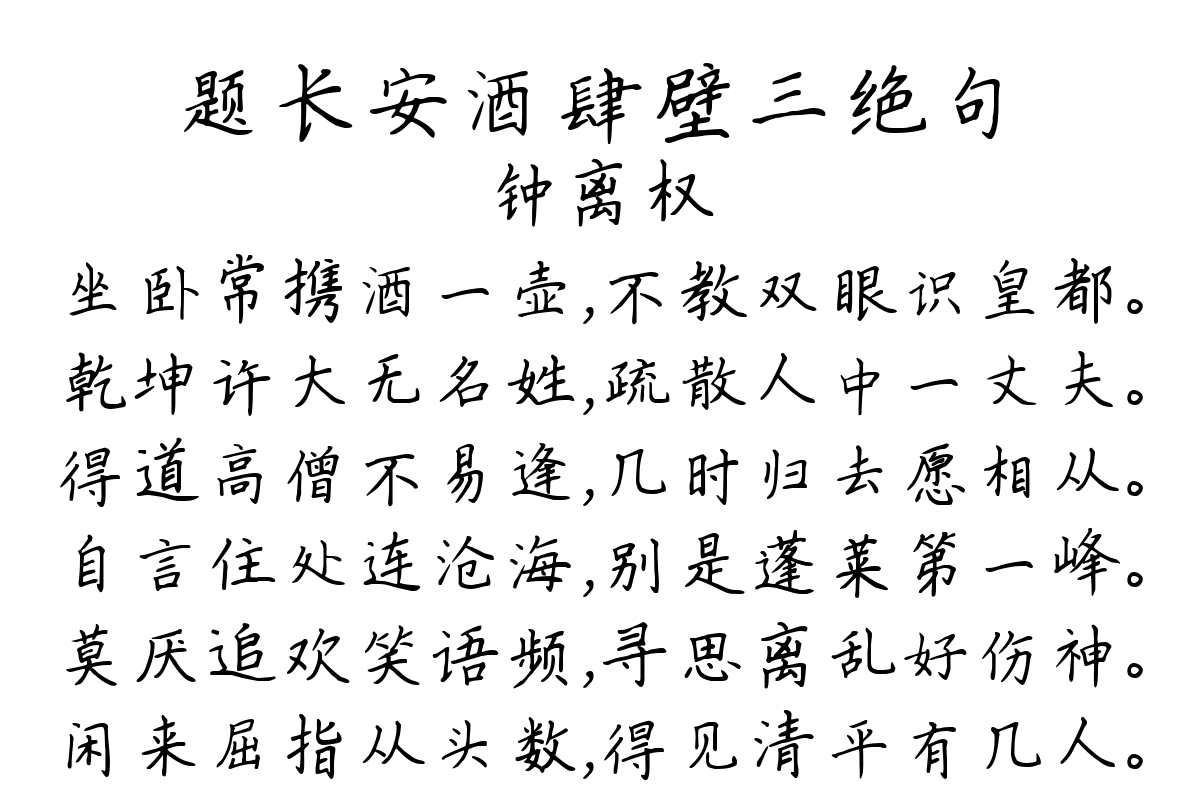 题长安酒肆壁三绝句
钟离权
坐卧常携酒一壶,不教双眼识皇都。
乾坤许大无名姓,疏散人中一丈夫。
得道高僧不易逢,几时归去愿相从。
自言住处连沧海,别是蓬莱第一峰。
莫厌追欢笑语频,寻思离乱好伤神。
闲来屈指从头数,得见清平有几人。